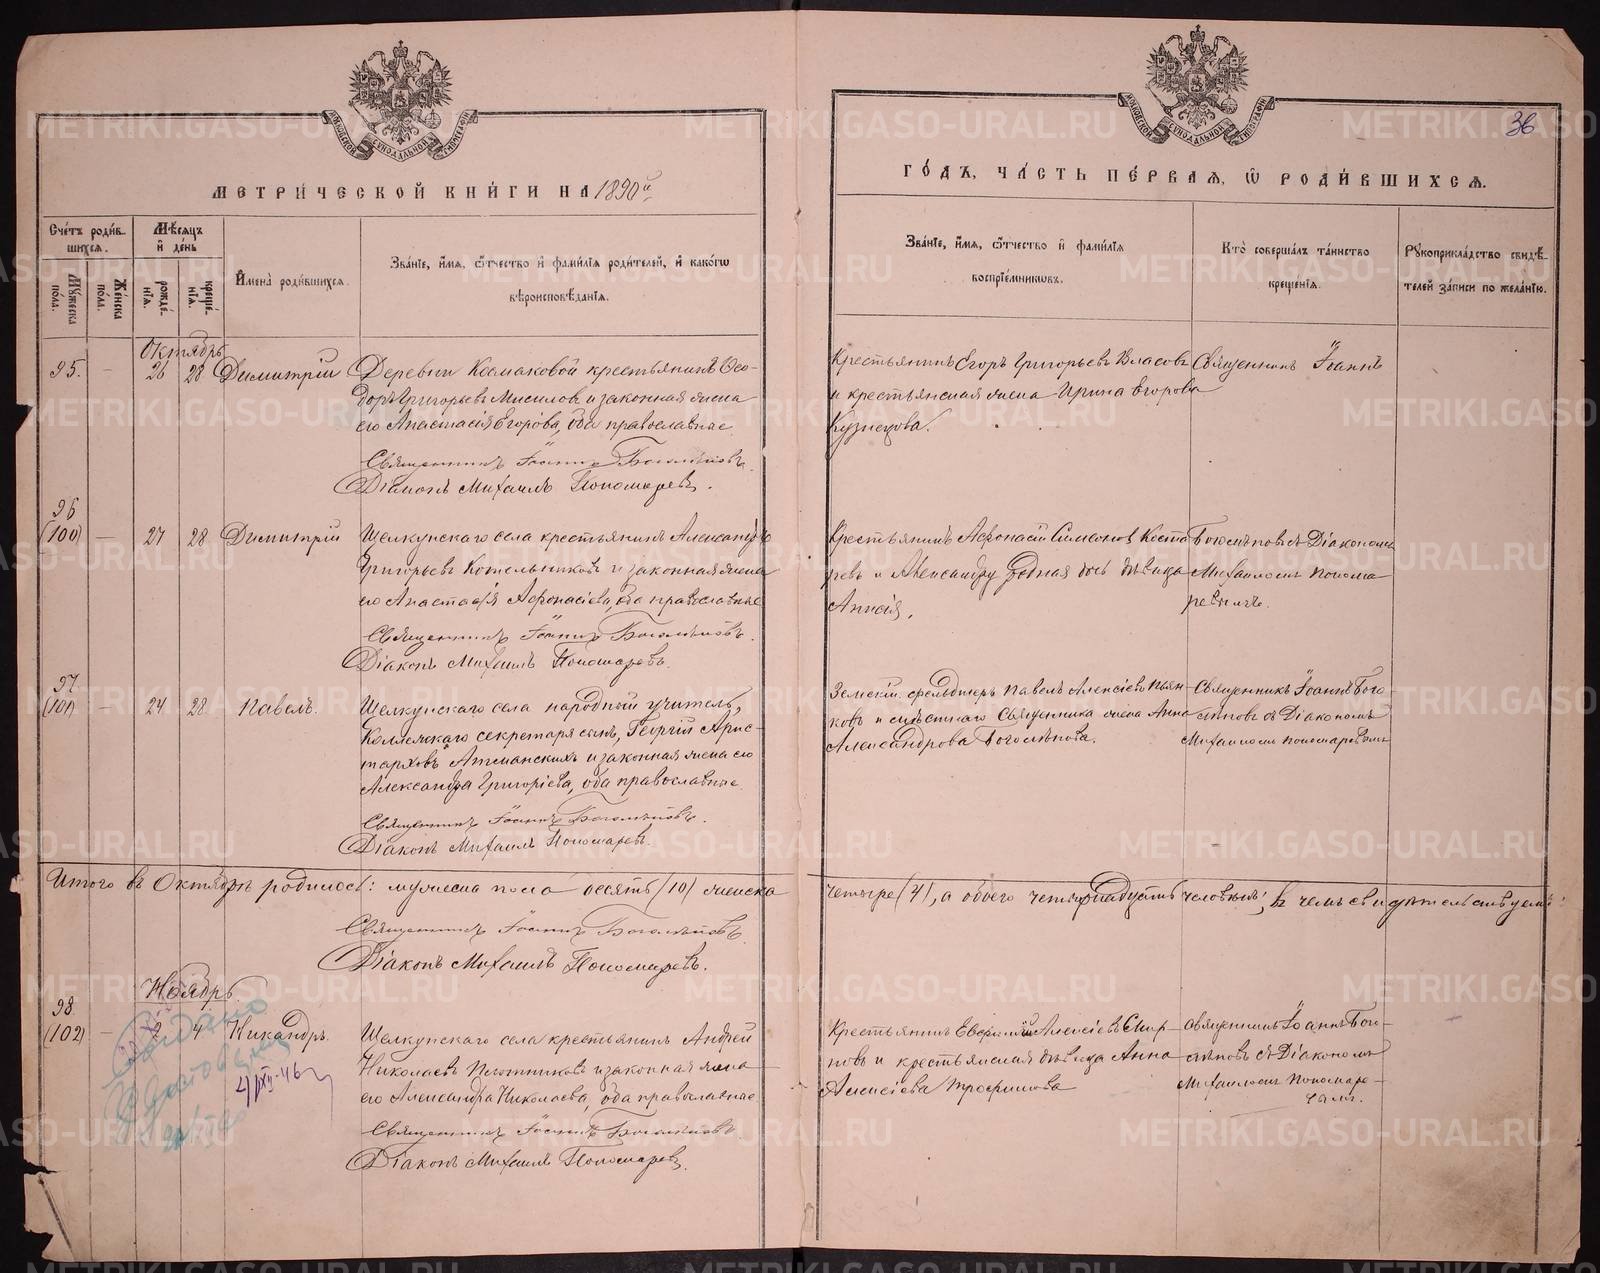 МЕТРИ́ЧЕСКОЙ КНИ́ГИ НА 1890й
ГО́ДЪ, ЧА́СТЬ ПЕ́РВАЯ, Ѡ РОДИ́ВШИХСЯ.
36
Сче́тъ роди́в-
шихся.
Мѣ́сяцъ
и҆ де́нь
Му́жеска
по́ла.
Же́нска
по́ла.
рожде́-
нїя.
креще́-
нїя.
И҆мена̀ роди́вшихся.
Зва́нїе, и҆́мя, ѻ҆́тчество и҆ фами́лїя роди́телей, и҆ како́гѡ
вѣроисповѣ́данїя.
Зва́нїе, и҆́мя, ѻ҆́тчество и҆ фами́лїя
воспрїе́мниковъ.
Кто̀ соверша́лъ та́инство
креще́нїя.
Рꙋкоприкла́дство свидѣ́-
телей за́писи по жела́нїю.
Октябрь
95. — 26 28 Димитрій
Деревни Космаковой крестьянинъ Ѳео-
доръ Григорьевъ Мисиловъ и законная жена
его Анастасія Егорова, оба православные
Священникъ Іоаннъ Боголѣповъ
Діаконъ Михаилъ Пономаревъ.
Крестьянинъ Егоръ Григорьевъ Власовъ
и крестьянская жена Ирина Егорова
Кузнецова.
Священникъ Іоаннъ
96
(100) — 27 28 Димитрій
Щелкунскаго села крестьянинъ Александръ
Григорьевъ Котельниковъ и законная жена
его Анастасія Афонасіева, оба православные
Священникъ Іоаннъ Боголѣповъ.
Діаконъ Михаилъ Пономаревъ.
Крестьянинъ Афонасій Симеоновъ Коста
ревъ и Александру родная дочь дѣвица
Анисія.
Боголѣповъ съ Діакономъ
Михаиломъ Понома
ревымъ.
97
(101) — 24 28 Павелъ.
Щелкунскаго села народный учитель,
Коллежскаго секретаря сынъ, Георгій Арис-
тарховъ и законная жена его
Александра Григоріева, оба православные
Священникъ Іоаннъ Боголѣповъ.
Діаконъ Михаилъ Пономаревъ.
Земскій фельдшеръ Павелъ Алексіевъ Пьян-
ковъ и мѣстнаго Священника жена Анна
Александрова Боголѣпова.
Священникъ Іоаннъ Бого
лѣповъ съ Діакономъ
Михаиломъ Пономаревымъ
Итого въ Октябрѣ родилось: мужеска пола десять (10) женска
четыре (4), а обоего четырнадцать человѣкъ, въ чемъ свидѣтельствуемъ:
Священникъ Іоаннъ Боголѣповъ.
Діаконъ Михаилъ Пономаревъ.
Ноябрь.
98
(102) — 2 4 Никандръ.
4/XII-46
Щелкунскаго села крестьянинъ Андрей
Николаевъ Плотниковъ и законная жена
его Александра Николаева, оба православные
Священникъ Іоаннъ Боголѣповъ
Діаконъ Михаилъ Пономаревъ.
Крестьянинъ Евфимій Алексіевъ Смир-
новъ и крестьянская дѣвица Анна
Алексіева Трофимова
Священникъ Іоаннъ Бого-
лѣповъ съ Діакономъ
Михаиломъ Пономаре-
вымъ.
METRIKI.GASO-URAL.RU